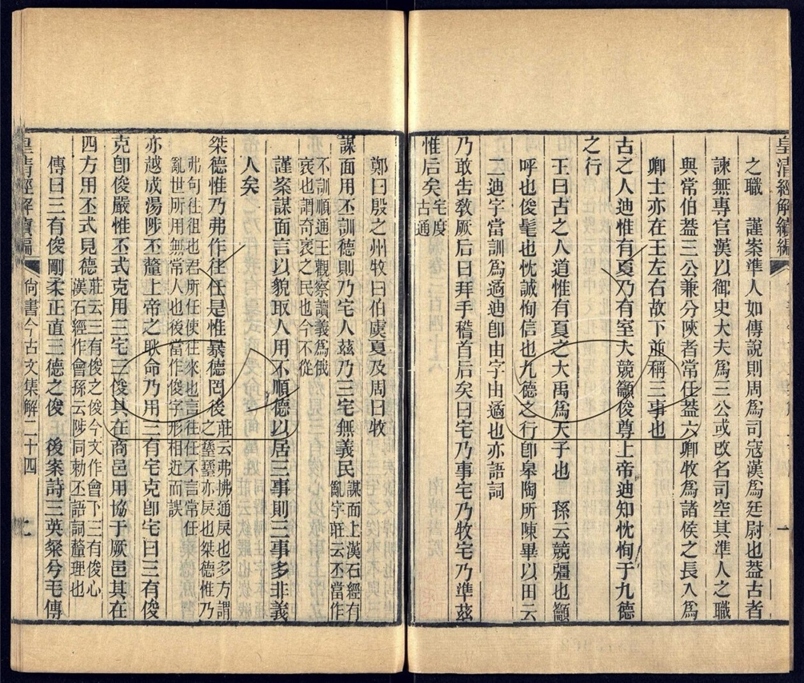 皇清經解續編
之職　謹案準人如傳說則周爲司寇漢爲廷尉也葢古者
諫無專官漢以御史大夫爲三公或改名司空其準人之職
與常伯葢三公兼分陝者常任葢六卿牧爲諸侯之長入爲
卿士亦在王左右故下並稱三事也
古之人迪惟有夏乃有室大競籲俊尊上帝迪知忱恂于九德
之行
王曰古之人道惟有夏之大禹爲天子也　孫云競彊也籲
呼也俊髦也忱誠恂信也九德之行卽皋陶所陳畢以田云
二迪字當訓爲遹迪卽由字由遹也亦語詞
乃敢告敎厥后曰拜手稽首后矣曰宅乃事宅乃牧宅乃準茲
惟后矣宅度
古通
鄭曰殷之州牧曰伯虞夏及周曰牧
謀面用丕訓德則乃宅人茲乃三宅無義民謀面上漢石經有
亂字莊云丕當作
不訓順通王觀察讀義爲俄
衺也謂奇衺之民也今不從
謹案謀面言以貌取人用不順德以居三事則三事多非義
人矣
桀德惟乃弗作往任是惟暴德罔後莊云弗拂通戾也多方謂
之墓盭亦戾也桀德惟乃
弗句往徂也君所任使往來也言往任不言常任
亂世所用無常人也後當作俊字形相近而誤
亦越成湯陟丕釐上帝之耿命乃用三有宅克卽宅曰三有俊
克卽俊嚴惟丕式克用三宅三俊其在商邑用協于厥邑其在
四方用丕式見德莊云三有俊之俊今文作會下三有俊心
漢石經作會孫云陟同勑丕語詞釐理也
傳曰三有俊剛柔正直三德之俊　後案詩三英粲兮毛傳
皇清經解續編
尙書今古文集解二十四